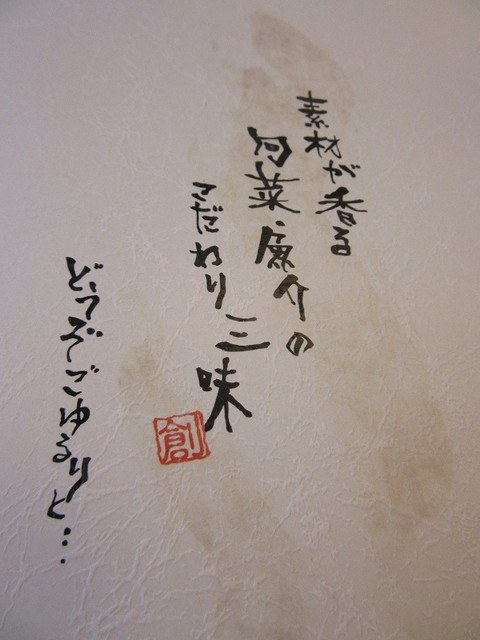 素材が香る
旬菜・魚介の
こだわり三味
創
どうぞごゆるりと…